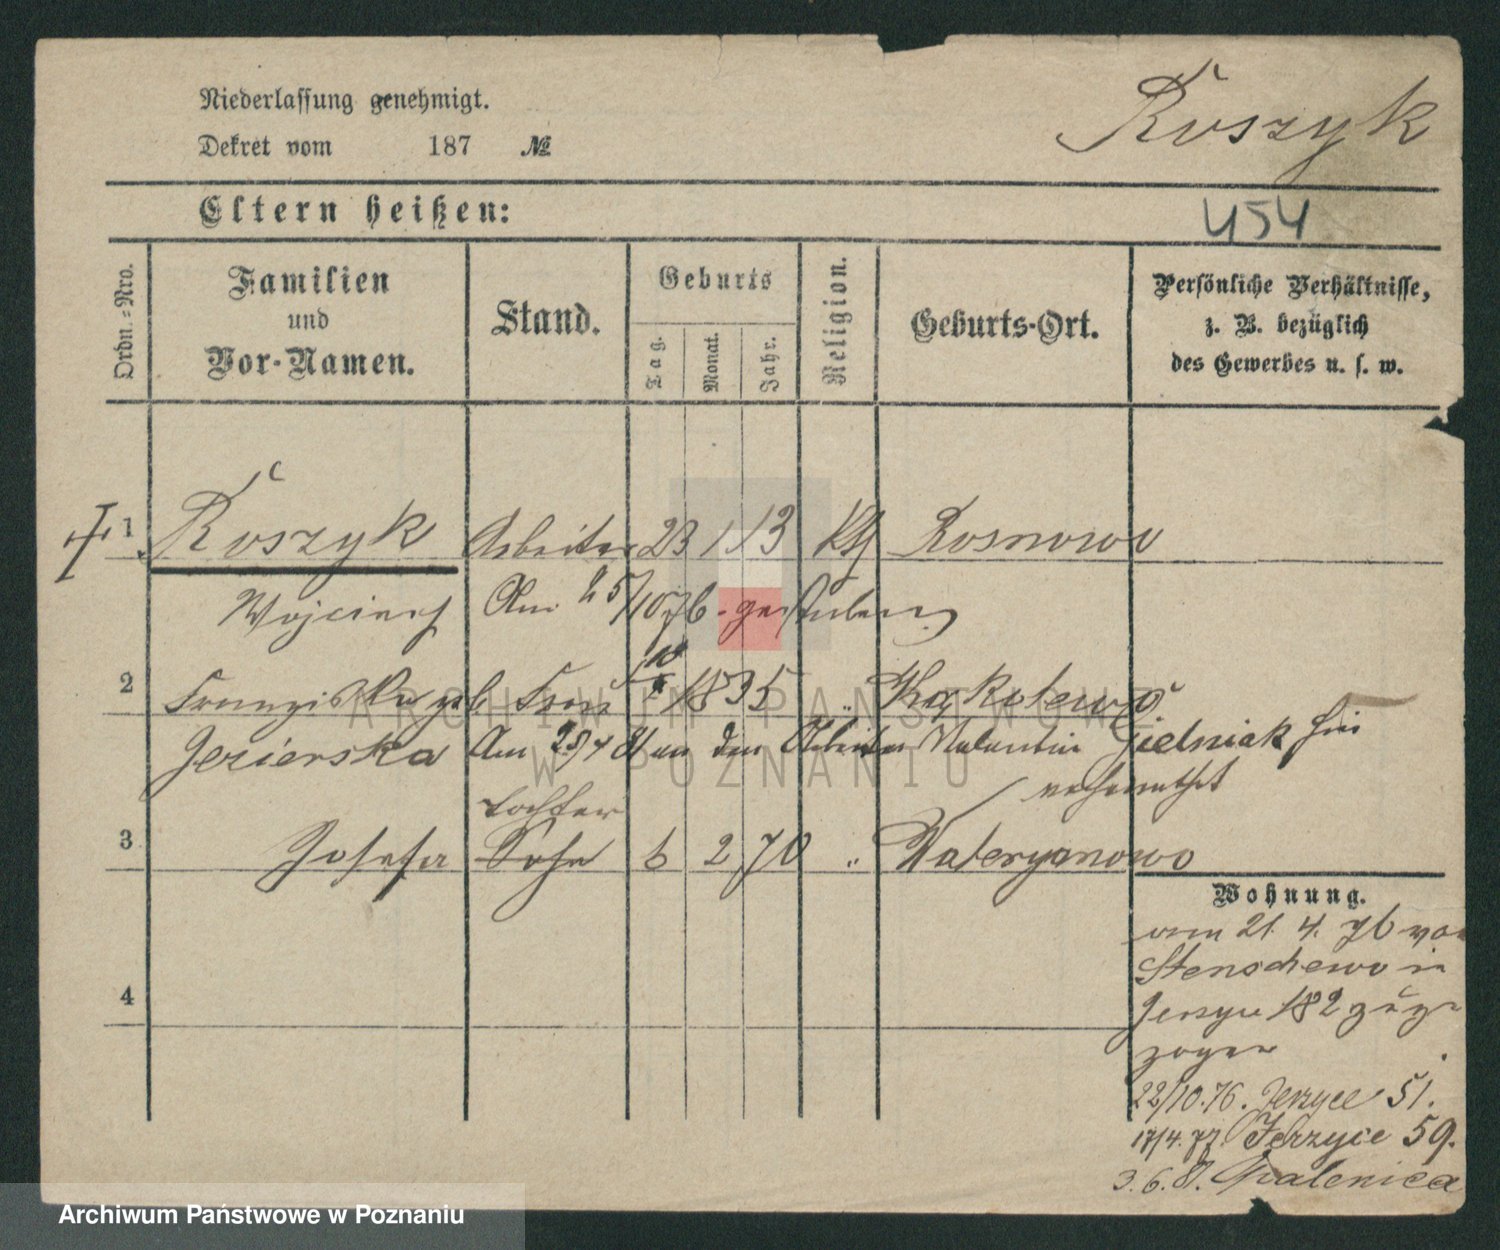 Niederlassung genehmigt.
Kuszyk
Dekret vom 187 №
Eltern heißen:
454
Ordn.-Nro.
Familien
und
Vor-Namen.
Stand.
Geburts
Tag.
Monat.
Jahr.
Religion.
Geburts-Ort.
Persönliche Verhältnisse,
z. B. bezüglich
des Gewerbes u. s. w.
1 Kuszyk Arbeiter 23 1 13 Kth Rosnowo
Wojciech Am 25/10 76 gestorben
2 Franziska geb. Frau 1835 " Konkolewo
Jezierska Am 29/4 81 an den Arbeiter Valentin Zielniak
verheirathet
Tochter
3 Josefa Sohn 6 2 70 " Waleryanowo
Wohnung.
vom 21. 4. 76 von
Stenschewo in
Jersyce 182 zuge
zogen
4
22/10.76. Jerzyce 51.
17/4.77. Jerzyce 59.
3.6.81. Palenica
ARCHIWUM PAŃSTWOWE
W POZNANIU
Archiwum Państwowe w Poznaniu